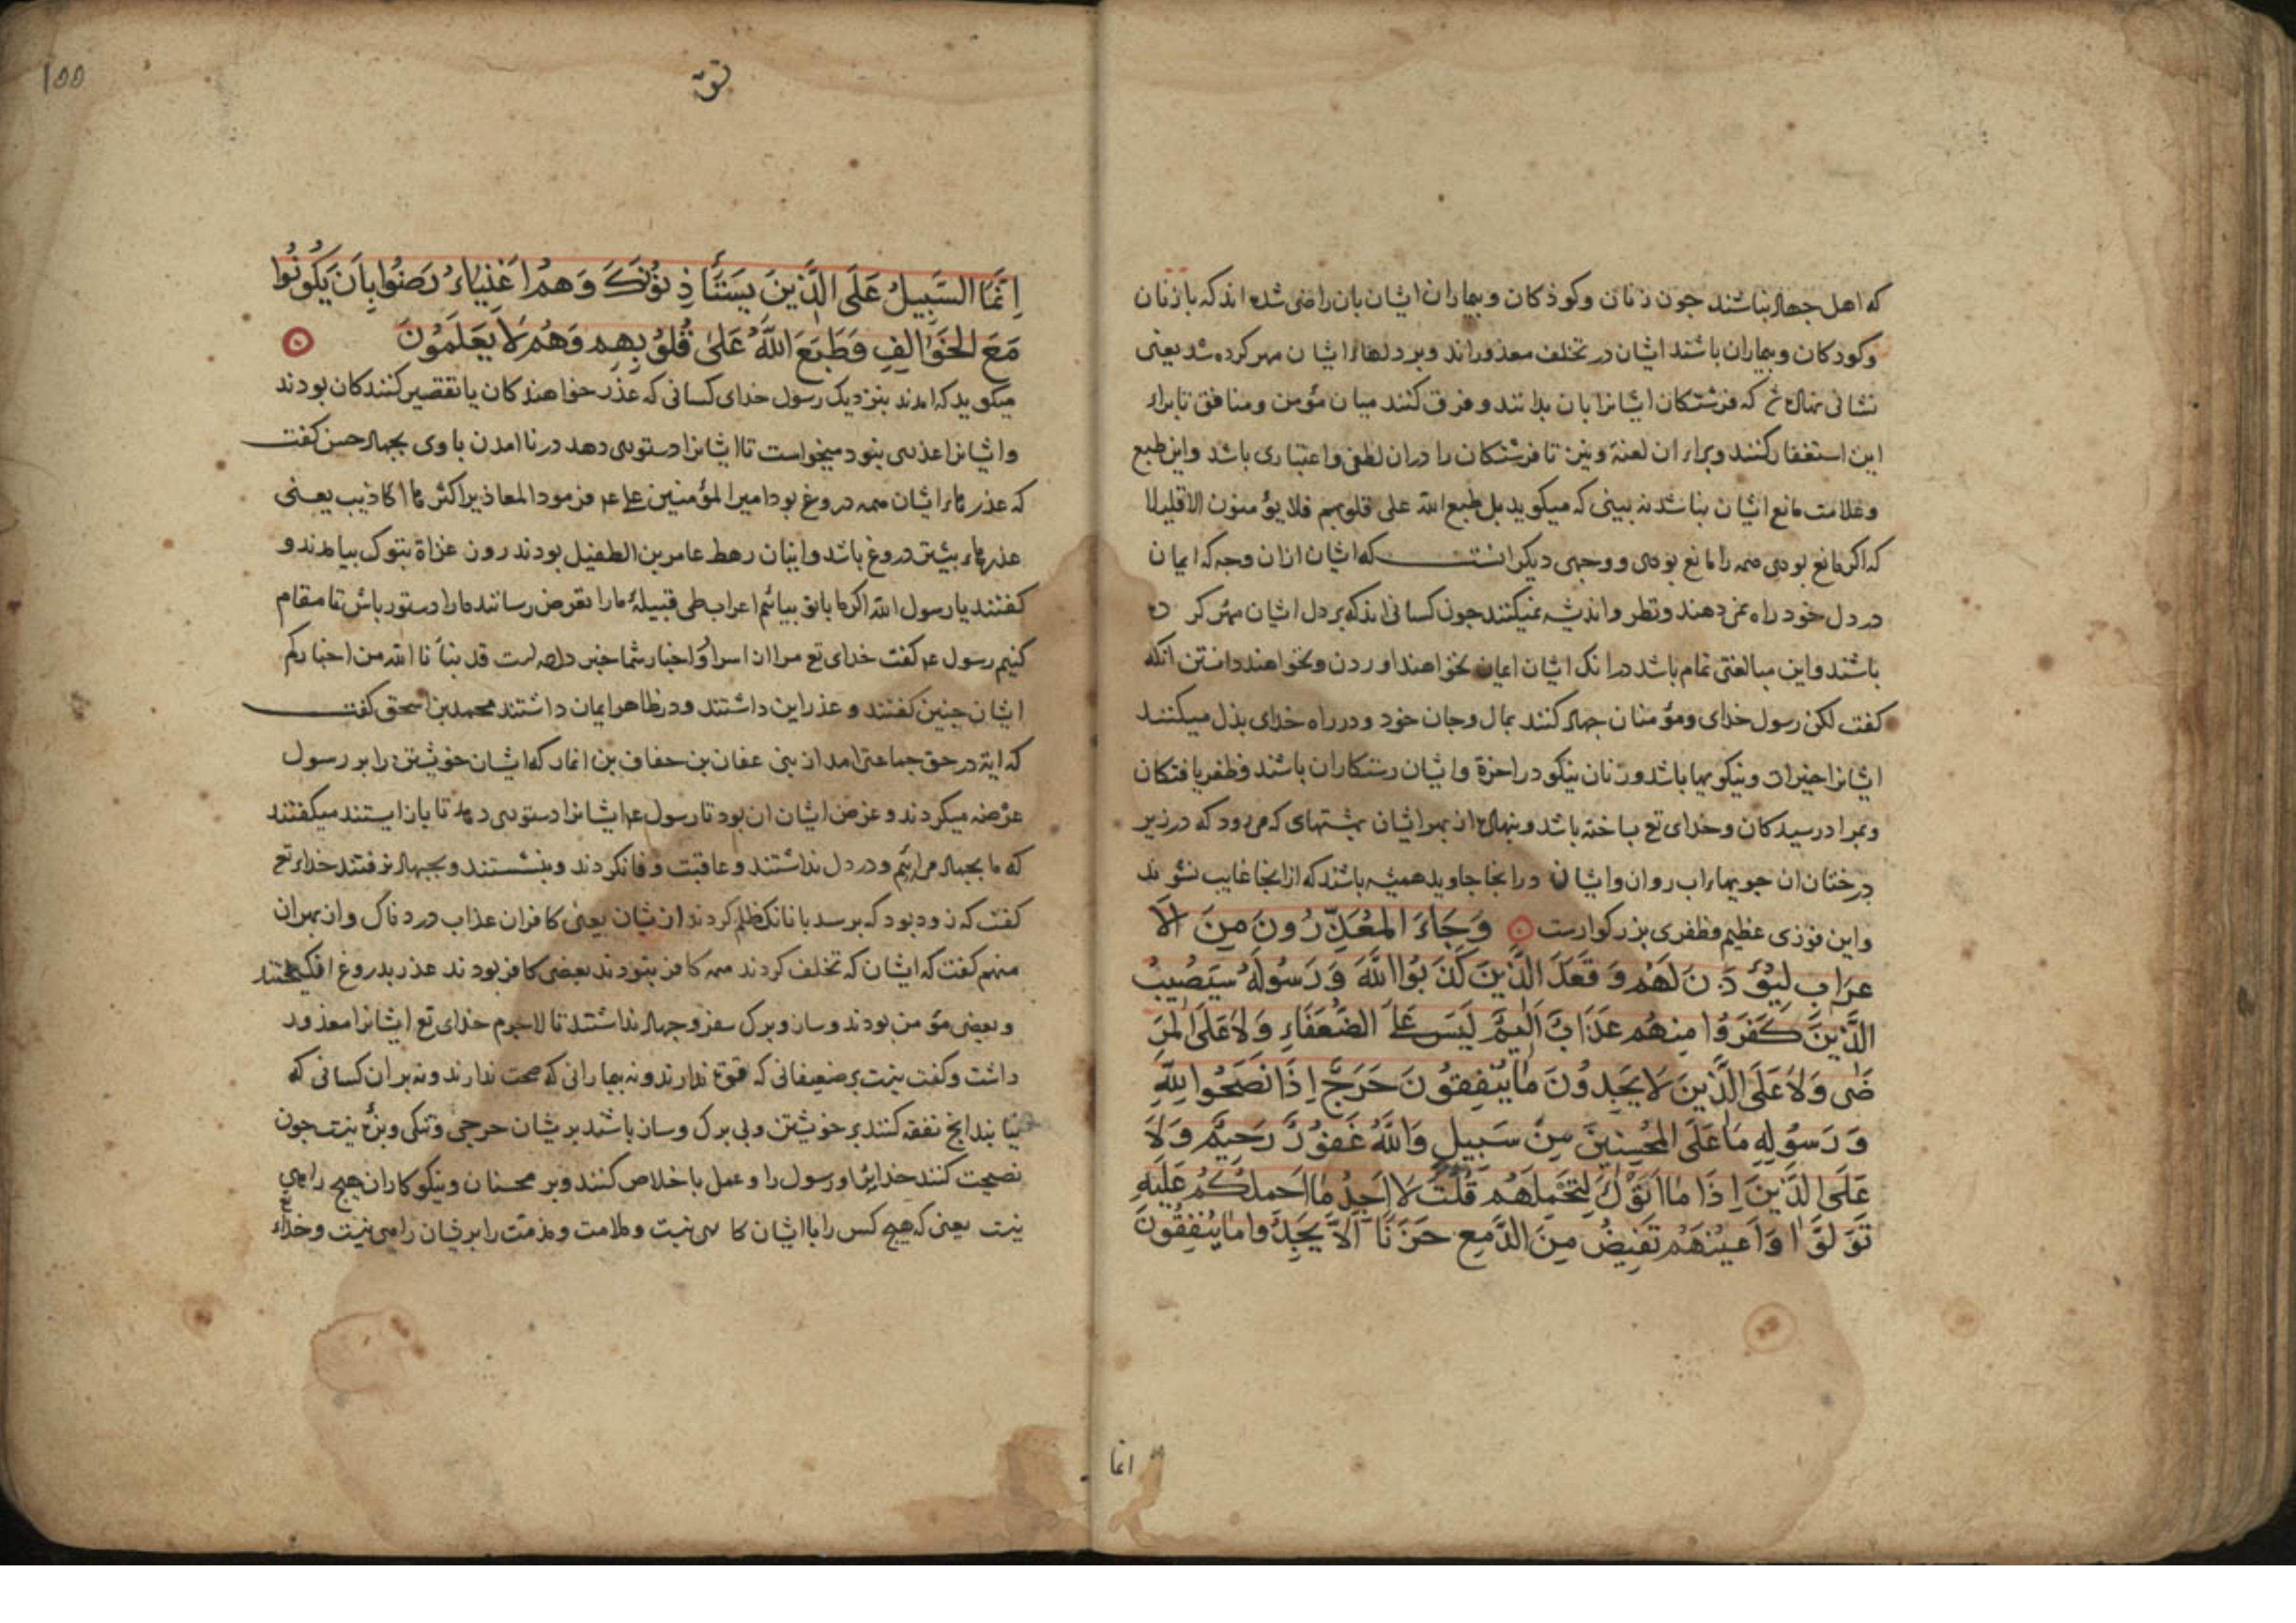 که اهل جهاد نباشند جون زنان وکوذکان وبیماران ایشان بان راضی شده اند که بازنان
وکودکان وبیماران باشند ایشان در تخلف معذوراند وبر دلهاء ایشان مهر کرده شد یعنی
نشانی نهاده که فرشتکان ایشانرا بان بدانند وفرق کنند میان مؤمن ومنافق تا براء
این استغفار کنند وبراء ان لعنة ونیز تا فرشتکان را دران لطفی واعتباری باشد واین طبع
وعلامت مانع ایشان نباشد نه بینی که میکوید بل طبع الله علی قلوبهم فلا یؤمنون الا قلیلا
که اکر مانع بودی همه را مانع بودی ووجهی دیکر انست که ایشان ازان وجه که ایمان
در دل خود راه نمی دهند ونظر واندیشه نمیکنند جون کسانی اند که بر دل ایشان مهر کرده
باشند واین مبالغتی تمام باشد درانک ایشان ایمان نخواهند اوردن ونخواهند دانستن انکه
کفت لکن رسول خدای ومؤمنان جهاد کنند بمال وجان خود ودر راه خدای بذل میکنند
ایشانرا خیرات ونیکویها باشد وزنان نیکو در اخرة وایشان رستکاران باشند وظفر یافتکان
وبمراد رسیدکان وخدای تع ساخته باشد وبنهاده از بهر ایشان بهشتهای که می رود که در زیر
درختان ان جویهاء اب روان وایشان درانجا جاوید همیشه باشند که ازانجا غایب نشوند
واین فوزی عظیم وظفری بزرکوارست وَجَاءَ المُعَذِّرُونَ مِنَ الاَ
عرَابِ لِيُؤذَنَ لَهُم وَقَعَدَ الَّذِينَ كَذَبُوا اللَّهَ وَرَسُولَهُ سَيُصِيبُ
الَّذِينَ كَفَرُوا مِنهُم عَذَابٌ اَلِيمٌ لَيسَ عَلَى الضُّعَفَاءِ وَلاَ عَلَى المَر
ضَى وَلاَ عَلَى الَّذِينَ لاَ يَجِدُونَ مَا يُنفِقُونَ حَرَجٌ اِذَا نَصَحُوا لِلَّهِ
وَرَسُولِهِ مَا عَلَى المُحسِنِينَ مِن سَبِيلٍ وَاللَّهُ غَفُورٌ رَحِيمٌ وَلاَ
عَلَى الَّذِينَ اِذَا مَا اَتَوكَ لِتَحمِلَهُم قُلتَ لاَ اَجِدُ مَا اَحمِلُكُم عَلَيهِ
تَوَلَّوا وَاَعيُنُهُم تَفِيضُ مِنَ الدَّمعِ حَزَنًا اَلاَّ يَجِدُوا مَا يُنفِقُونَ
انما
تو
١٥٥
اِنَّمَا السَّبِيلُ عَلَى الَّذِينَ يَستَأذِنُونَكَ وَهُم اَغنِيَاءُ رَضُوا بِاَن يَكُونُوا
مَعَ الخَوَالِفِ وَطَبَعَ اللَّهُ عَلَى قُلُوبِهِم وَهُم لاَ يَعلَمُونَ
میکوید که امدند بنزدیک رسول خدای کسانی که عذر خواهندکان یا تقصیر کنندکان بودند
وایشانرا عذری نبود میخواست تا ایشانرا دستوری دهد در نا امدن با وی بجهاد حسن کفت
که عذرهاء ایشان همه دروغ بود امیر المؤمنین علی عم فرمود المعاذیر اکثرها اکاذیب یعنی
عذرهاء بیشتر دروغ باشد واینان رهط عامر بن الطفیل بودند روز غزاة تبوک بیامدند و
کفتند یا رسول الله اکر ما با تو بیائیم اعراب طی قبیلۀ مارا تعرض رسانند مارا دستور باش تا مقام
کنیم رسول عم کفت خدای تع مرا از اسرار واخبار شما خبر داده است قد نبأنا الله من اخبارکم
ایشان جنین کفتند وعذر این داشتند ودر ظاهر ایمان داشتند محمد بن اسحق کفت
که ایة در حق جماعتی امد از بنی عفان بن خفاف بن انمار که ایشان خویشتن را بر رسول
عرضه میکردند وغرض ایشان ان بود تا رسول عم ایشانرا دستوری دهد تا باز ایستند میکفتند
که ما بجهاد می ائیم ودر دل نداشتند وعاقبت وفا نکردند وبنشستند وبجهاد نرفتند خدای تع
کفت که زود بود که برسد بانانک ظلم کردند از یشان یعنی کافران عذاب دردناک وان بهر ان
منهم کفت که ایشان که تخلف کردند همه کافر نبودند بعضی کافر بودند عذر بدروغ افکیختند
وبعضی مؤمن بودند وساز وبرک سفر وجهاد نداشتند تا لاجرم خدای تع ایشانرا معذور
داشت وکفت نیست بر ضعیفانی که قوة ندارند ونه بیمارانی که صحت ندارند ونه بر ان کسانی که
نیابند انج نفقه کنند بر خویشتن وبی برک وساز باشند بریشان حرجی وتنکی وبزۀ نیست جون
نصیحت کنند خدایرا ورسول را وعمل باخلاص کنند وبر محسنان ونیکوکاران هیج راهی
نیست یعنی که هیچ کس را با ایشان کاری نیست وملامت ومذمت را بریشان راهی نیست وخدای تع